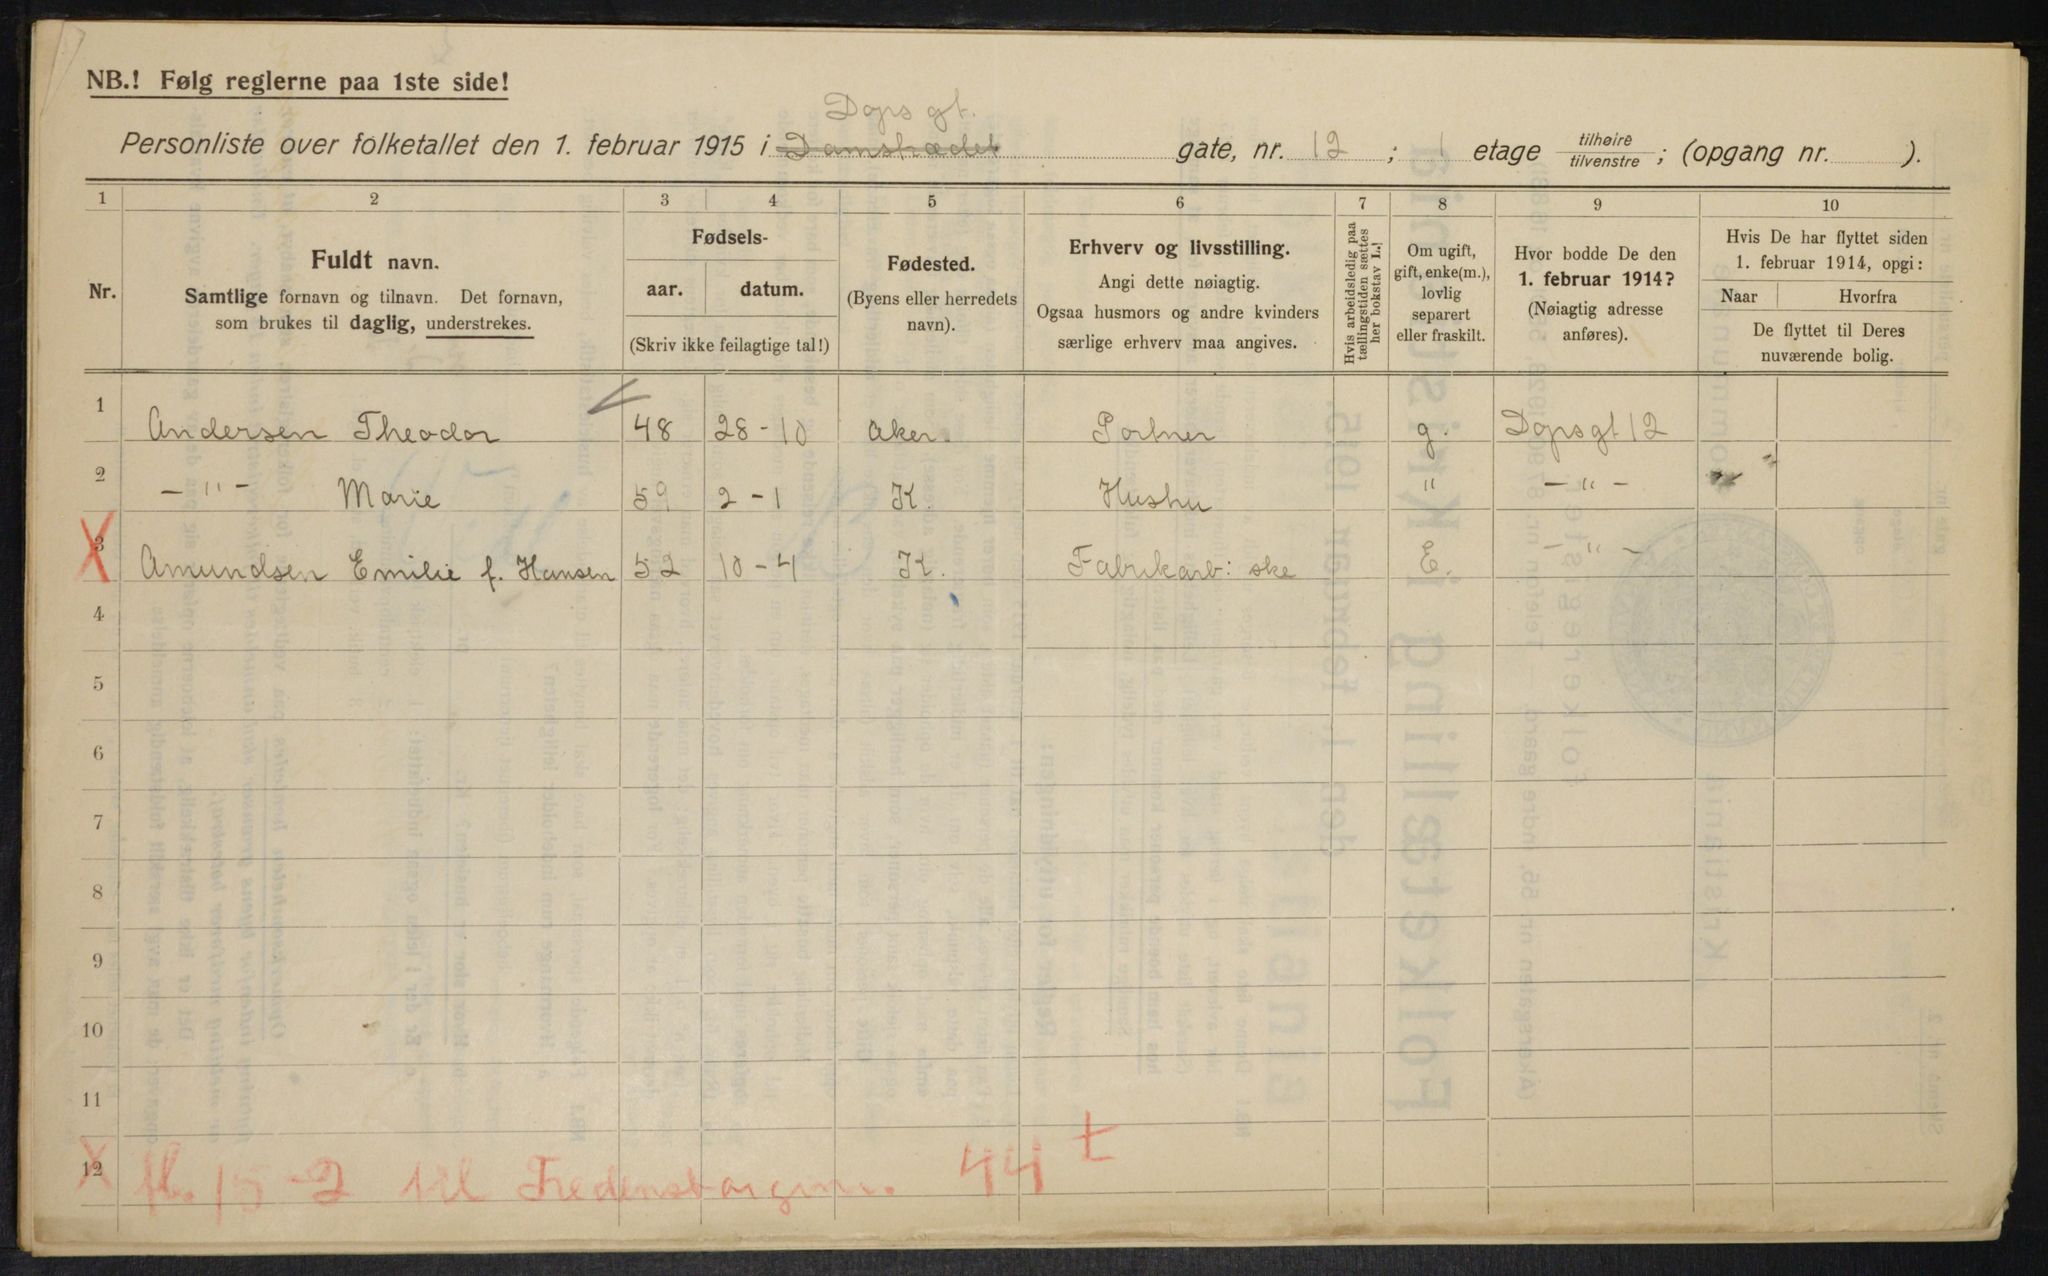 NB.! Følg reglerne paa 1ste side!
Dops gt.
Personliste over folketallet den 1. februar 1915 i Damstrædet gate, nr. 12 ; 1 etage tilhøire/tilvenstre ; (opgang nr. ).
1 2 3 4 5 6 7 8 9 10
Nr.
Fuldt navn.
Samtlige fornavn og tilnavn. Det fornavn,
som brukes til daglig, understrekes.
Fødsels-
aar. datum.
(Skriv ikke feilagtige tal!)
Fødested.
(Byens eller herredets
navn).
Erhverv og livsstilling.
Angi dette nøiagtig.
Ogsaa husmors og andre kvinders
særlige erhverv maa angives.
Hvis arbeidsledig paa
tællingstiden sættes
her bokstav L.!
Om ugift,
gift, enke(m.),
lovlig
separert
eller fraskilt.
Hvor bodde De den
1. februar 1914?
(Nøiagtig adresse
anføres).
Hvis De har flyttet siden
1. februar 1914, opgi:
Naar Hvorfra
De flyttet til Deres
nuværende bolig.
1 Andersen Theodor 48 28-10 Aker. Portner g. Dopsgt 12
2 -"- Marie 59 2-1 K. Hushu " -"-
X 3 Amundsen Emilie f. Hansen 52 10-4 K. Fabrikarb: ske E. -"-
4
5
6
7
8
9
10
11
X 12 fl. 15-2 til Fredensborgvn. 44 t